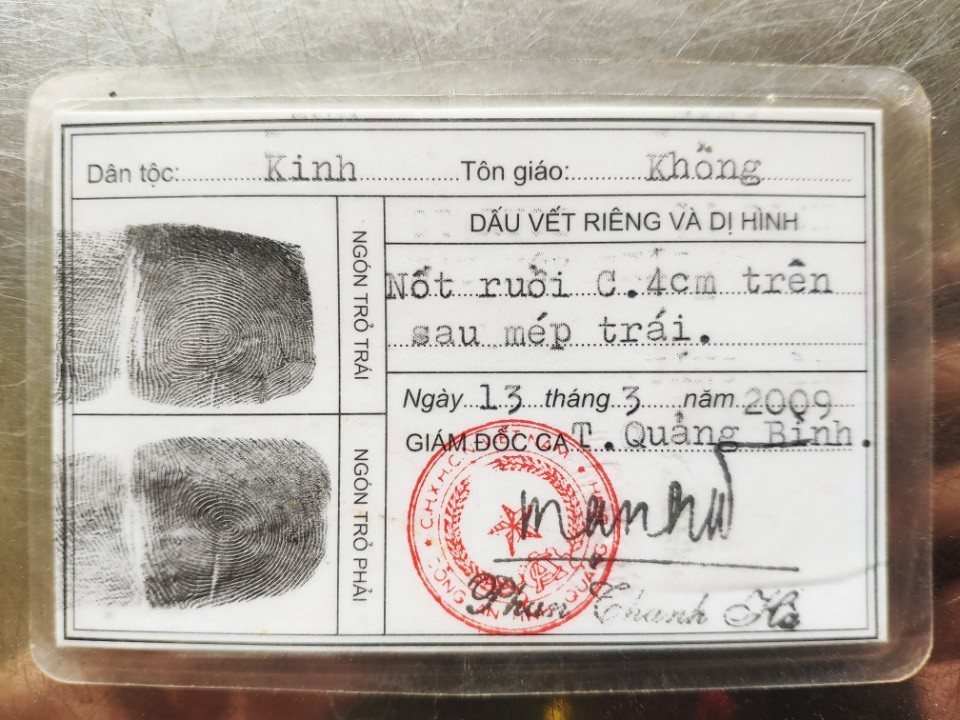 Dân tộc: Kinh Tôn giáo: Không
NGÓN TRỎ TRÁI
NGÓN TRỎ PHẢI
DẤU VẾT RIÊNG VÀ DỊ HÌNH
Nốt ruồi C.4cm trên
sau mép trái.
Ngày 13 tháng 3 năm 2009
GIÁM ĐỐC CA T. Quảng Bình.
C.H.X.H.C.N VIỆT NAM
CÔNG AN TỈNH QUẢNG
Phan Thanh Hà